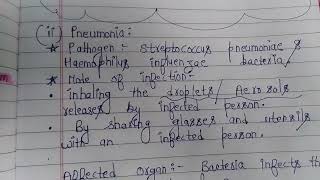 (ii) Pneumonia:-
* Pathogen:- Streptococcus pneumoniae &
Haemophilus influenzae bacteria
* Mode of infection:-
• Inhaling the droplets / Aerosols
releases by infected person.
• By sharing glasses and utensils
with an infected person.
Affected organ:- Bacteria infects the